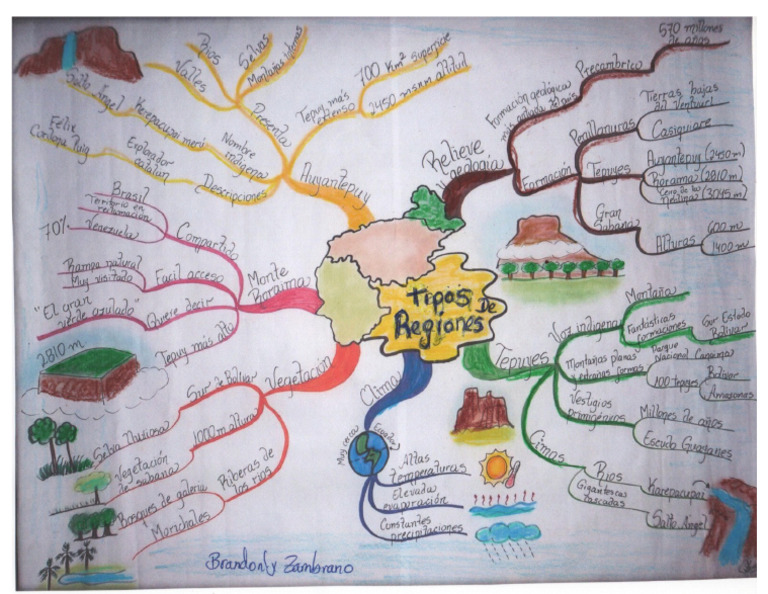 Tipos
De
Regiones
Relieve
y geología
Formación geológica
Precambrico
570 millones
de años
Formación
Penillanuras
Tierras bajas
del Ventuari
Casiquiare
Tepuyes
Auyantepuy (2450 m)
Roraima (2810 m)
(3045 m)
Gran
Sabana
Alturas
600 m
1400 m
Tepuyes
Voz indigena
Montaña
Fantásticas
formaciones
Sur Estado
Bolivar
Montañas planas
y extrañas formas
Parque
Nacional Canaima
100 tepuyes
Bolivar
Amazonas
Vestigios
primigenios
Millones de años
Escudo Guayanes
Cimas
Rios
Karepacupai
Gigantescas
cascadas
Salto Angel
Clima
Muy cerca
Ecuador
Altas
temperaturas
Elevada
evaporación
Constantes
precipitaciones
Vegetación
Sur de Bolivar
Selva lluviosa
1000 m altura
Vegetación
de sabana
Riberas de
los rios
Bosques de galeria
Morichales
Monte
Roraima
Compartido
Brasil
Territorio en
reclamación
Venezuela
70%
Facil acceso
Rampa natural
Muy visitado
Quiere decir
"El gran
verde azulado"
Tepuy más alto
2810 m
Auyantepuy
Presenta
Valles
Rios
Selvas
Montañas
Tepuy más
extenso
700 Km² superficie
2450 msnm altitud
Nombre
indigena
Kerepacupai merú
Salto Angel
Descripciones
Explorador
catalan
Félix
Cardona Puig
Brandonly Zambrano